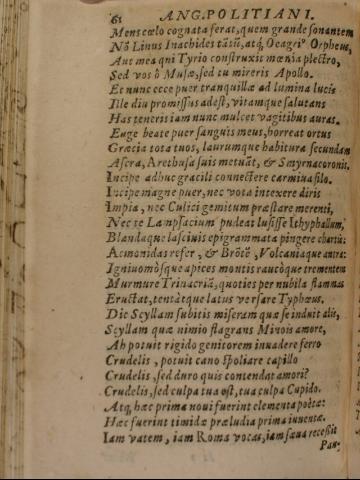 61 ANG. POLITIANI.
Mens cœlo cognata ferat, quem grande sonantem
Nõ Linus Inachides tãtũ, atq́; Oeagrio Orpheus,
Aut mea qui Tyrio construxit mœnia plectro,
Sed vos ò Musæ, sed tu mireris Apollo.
Et nunc ecce puer tranquillæ ad lumina lucis
Ille diu promissus adest, vitamque salutans
Has teneris iam nunc mulcet vagitibus auras.
Euge beate puer sanguis meus, horreat ortus
Græcia tota tuos, laurumque habitura secundam
Ascra, Arethusa suis metuãt, & Smyrna coronis.
Incipe adhuc gracili connectere carmina filo.
Incipe magne puer, nec vota intexere diris
Impia, nec Culici gemitum præstare merenti,
Nec te Lampsacium pudeat lusisse Ithyphallum,
Blandaque lasciuis epigrammata pingere chartis:
Acmonidas refer, & Brõtẽ, Volcaniaque antra:
Igniuomósque apices montis raucóque trementem
Murmure Trinacriã, quoties per nubila flammas
Eructat, tentátque latus versare Typhœus.
Dic Scyllam subitis miseram quæ se induit alis,
Scyllam quæ nimio flagrans Minois amore,
Ah potuit rigido genitorem inuadere ferro
Crudelis, potuit cano spoliare capillo
Crudelis, sed duro quis contendat amori?
Crudelis, sed culpa tua est, tua culpa Cupido.
Atq́; hæc prima noui fuerint elementa poëtæ:
Hæc fuerint timidæ præludia prima iuuentæ.
Iam vatem, iam Roma vocas, iam sæua recessit
Pau-